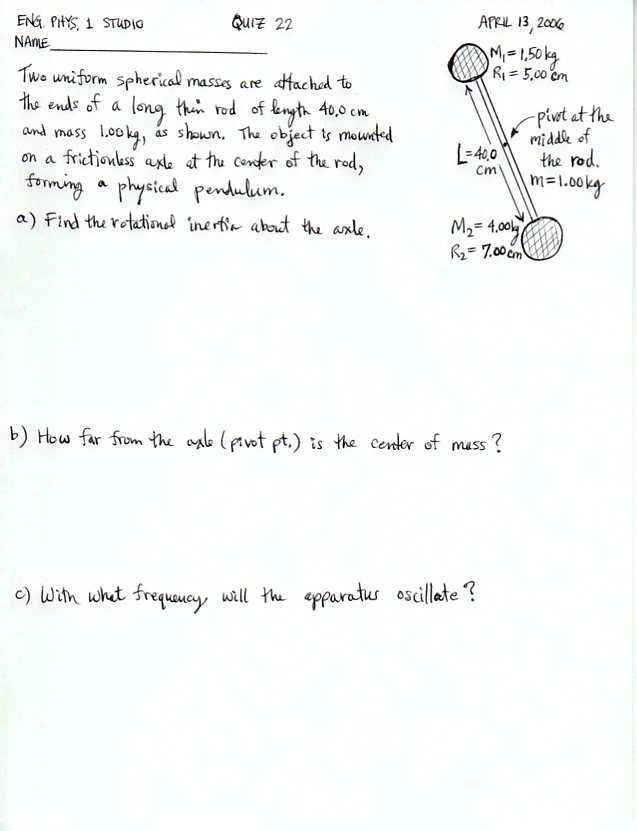 ENG. PHYS. 1 STUDIO QUIZ 22 APRIL 13, 2006
NAME
Two uniform spherical masses are attached to
the ends of a long thin rod of length 40,0 cm
and mass 1.00 kg, as shown. The object is mounted
on a frictionless axle at the center of the rod,
forming a physical pendulum.
a) Find the rotational inertia about the axle.
M₁ = 1,50 kg
R₁ = 5,00 cm
pivot at the
middle of
the rod.
m = 1.00 kg
L = 40,0
cm
M₂ = 4.00 kg
R₂ = 7.00 cm
b) How far from the axle (pivot pt.) is the center of mass?
c) With what frequency will the apparatus oscillate?